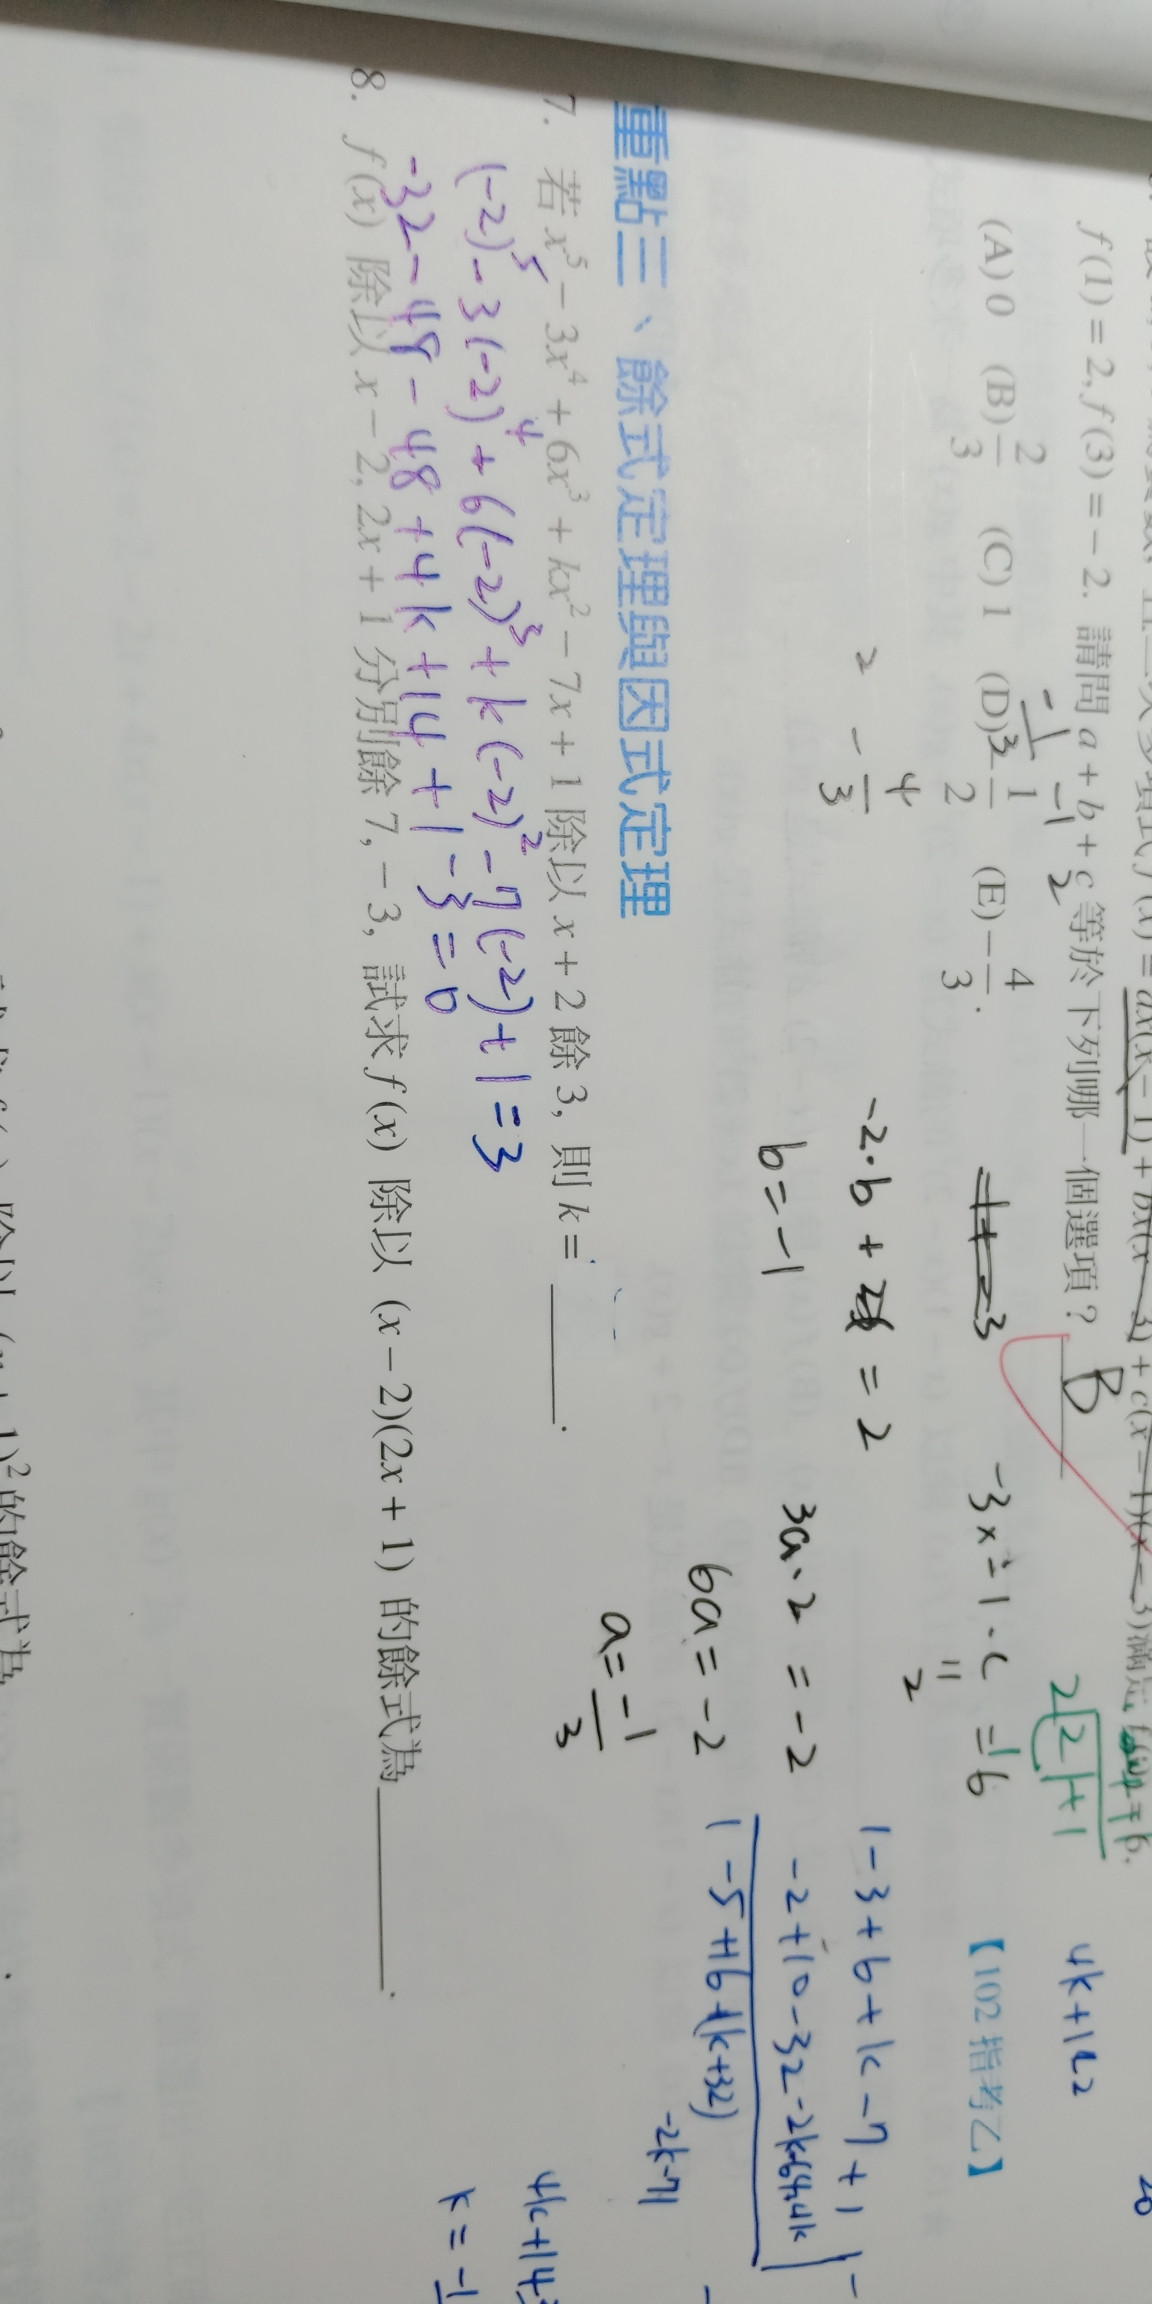 f(x) = ax(x-1) + bx(x-3) + c(x-1)(x-3)滿足
f(1) = 2, f(3) = -2. 請問 a + b + c 等於下列哪一個選項？ B
(A) 0 (B) 2/3 (C) 1 (D) 1/2 (E) -4/3.
【102 指考乙】
-1/3 -1 2
2 - 4/3
-3×-1·c = 6
2
-2·b + = 2
b = -1
3a·2 = -2
6a = -2
a = -1/3
4k+142
1-3+6+k-7+1
-2+10-32-2k+64+4k
1-5+16+(k+32)
-2k-71
重點三、餘式定理與因式定理
7. 若 x⁵ - 3x⁴ + 6x³ + kx² - 7x + 1 除以 x + 2 餘 3, 則 k = ______.
(-2)⁵-3(-2)⁴+6(-2)³+k(-2)²-7(-2)+1=3
-32-48-48+4k+14+1-3=0
8. f(x) 除以 x - 2, 2x + 1 分別餘 7, -3, 試求 f(x) 除以 (x - 2)(2x + 1) 的餘式為______.
除以 (x + 1)² 的餘式為